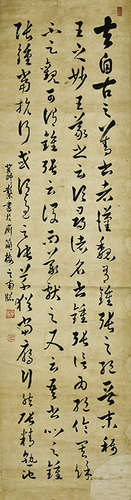 夫自古之善書者漢魏有鍾張之絕晉末稱二
王之妙王羲之云頃尋諸名書鍾張信為絕倫其餘
不足觀可謂鍾張云沒而羲獻繼之又云吾書比之鍾
張鍾當抗行或謂過之張草猶當雁行然張精熟池